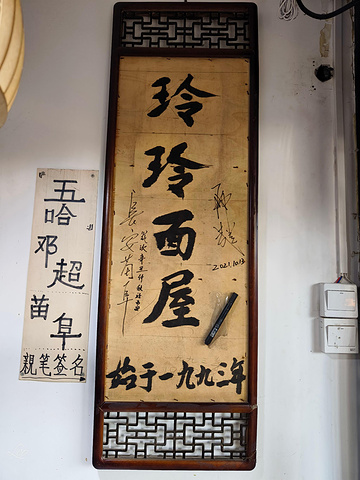 玲玲面屋
長安苗阜
2021.10.13
始于一九九三年
五哈
邓超
苗阜
親笔签名